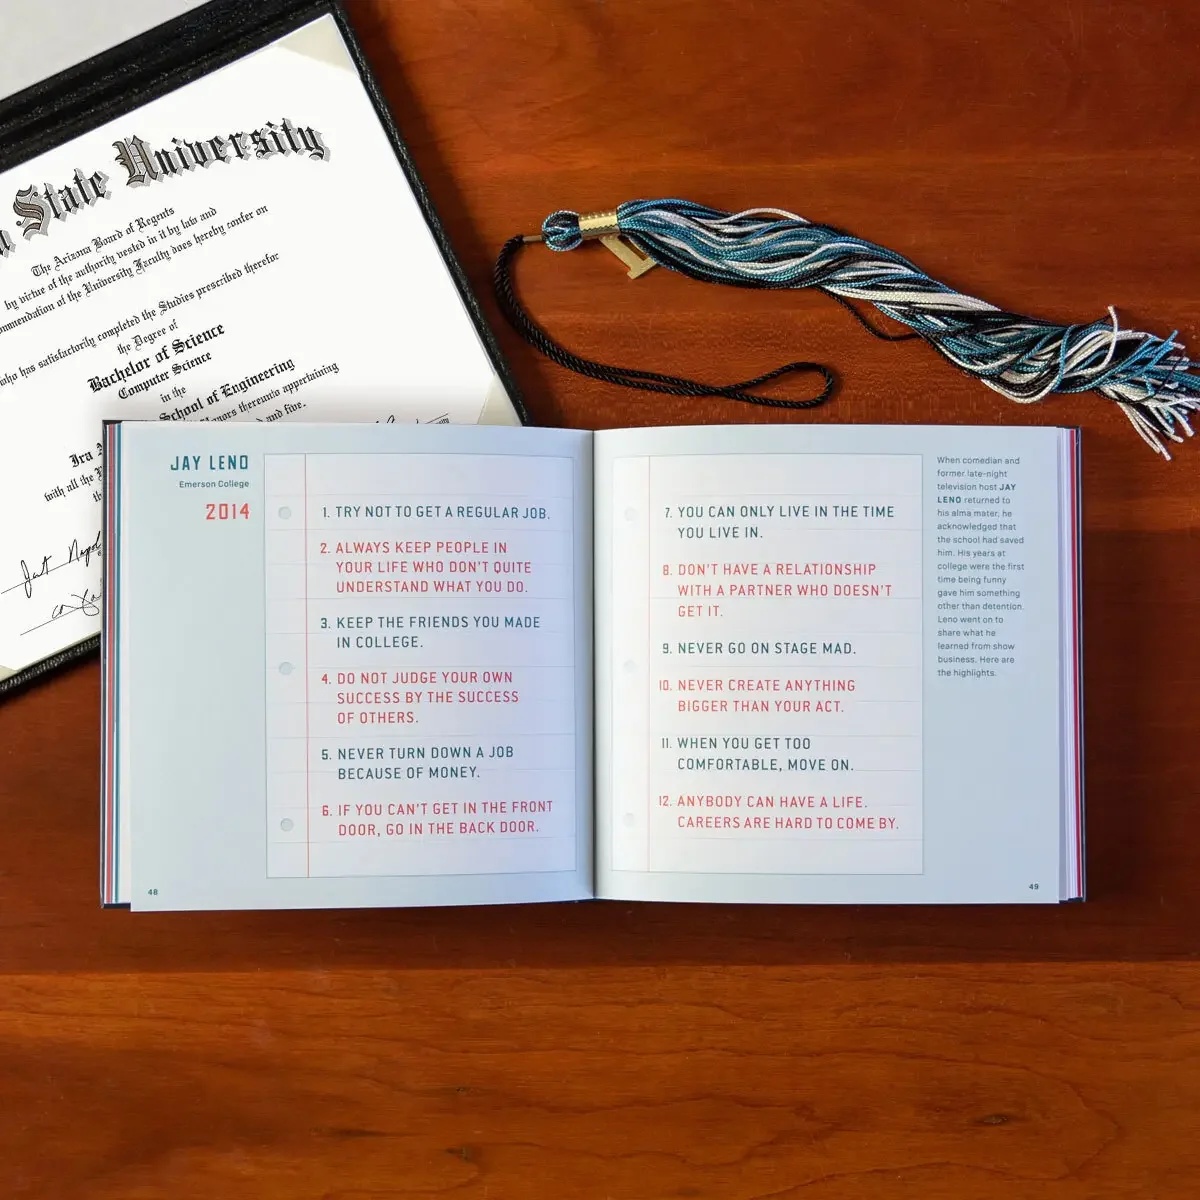 State University
The Arizona Board of Regents
by virtue of the authority vested in it by law and
of the University Faculty does hereby confer on
who has satisfactorily completed the Studies prescribed therefor
the Degree of
Bachelor of Science
Computer Science
in the
School of Engineering
thereunto appertaining
and five.
Ira
with all the
JAY LENO
Emerson College
2014
1. TRY NOT TO GET A REGULAR JOB.
2. ALWAYS KEEP PEOPLE IN
YOUR LIFE WHO DON'T QUITE
UNDERSTAND WHAT YOU DO.
3. KEEP THE FRIENDS YOU MADE
IN COLLEGE.
4. DO NOT JUDGE YOUR OWN
SUCCESS BY THE SUCCESS
OF OTHERS.
5. NEVER TURN DOWN A JOB
BECAUSE OF MONEY.
6. IF YOU CAN'T GET IN THE FRONT
DOOR, GO IN THE BACK DOOR.
48
7. YOU CAN ONLY LIVE IN THE TIME
YOU LIVE IN.
8. DON'T HAVE A RELATIONSHIP
WITH A PARTNER WHO DOESN'T
GET IT.
9. NEVER GO ON STAGE MAD.
10. NEVER CREATE ANYTHING
BIGGER THAN YOUR ACT.
11. WHEN YOU GET TOO
COMFORTABLE, MOVE ON.
12. ANYBODY CAN HAVE A LIFE.
CAREERS ARE HARD TO COME BY.
When comedian and
former late-night
television host JAY
LENO returned to
his alma mater, he
acknowledged that
the school had saved
him. His years at
college were the first
time being funny
gave him something
other than detention.
Leno went on to
share what he
learned from show
business. Here are
the highlights.
49